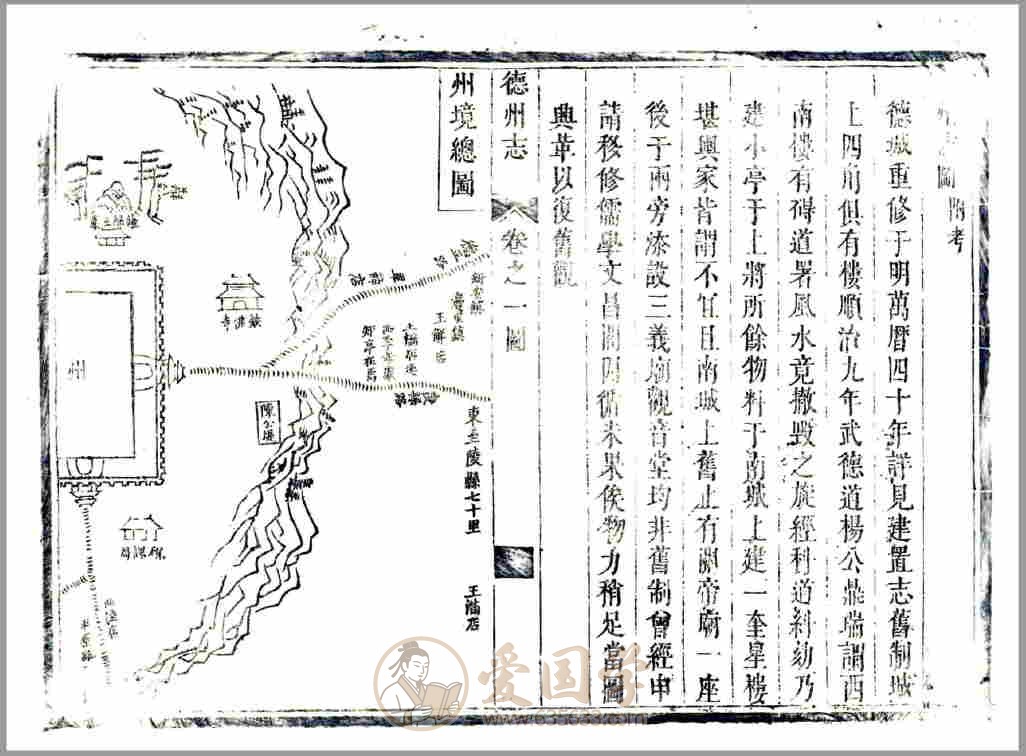 圖 附考
德城重修于明萬曆四十年詳見建置志舊制城
上四角俱有樓順治九年武德道楊公鼎瑞謂西
南樓有碍道署風水竟撤毀之旋經科道糾劾乃
建小亭于上將所餘物料于南城上建一奎星樓
堪輿家皆謂不宜且南城上舊止有關帝廟一座
後于兩旁添設三義廟觀音堂均非舊制曾經申
請移修儒學文昌閣因循未果俟物力稍足當圖
興革以復舊觀
德州志
卷之一圖
州境總圖
東至陵縣七十里
王蒲店
王解店
陳公堤
鐵佛寺
州
爱国学
www.635633.com